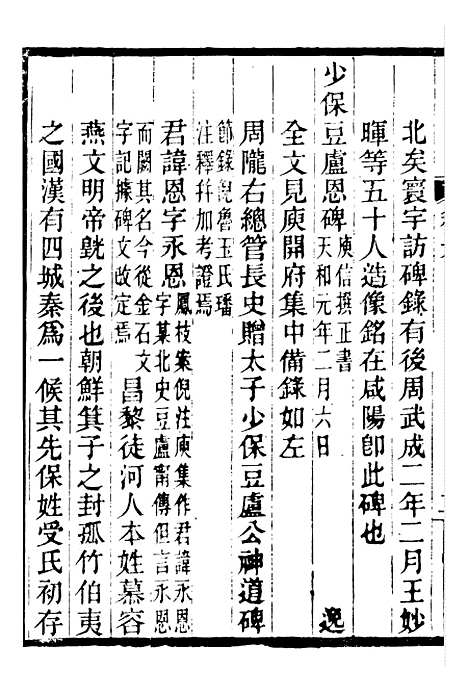 北矣寰宇訪碑錄有後周武成二年二月王妙
暉等五十人造像銘在咸陽卽此碑也
少保豆盧恩碑庾信撰正書天和元年二月六日 逸
全文見庾開府集中備錄如左
周隴右總管長史贈太子少保豆盧公神道碑
節錄倪魯玉氏璠注釋幷加考證焉
君諱恩字永恩鳳枝案倪注庾集作君諱永恩字某北史豆盧甯傳但言永恩
而闕其名今從金石文字記據碑文改定焉 昌黎徒河人本姓慕容
燕文明帝皝之後也朝鮮箕子之封孤竹伯夷
之國漢有四城秦爲一候其先保姓受氏初存